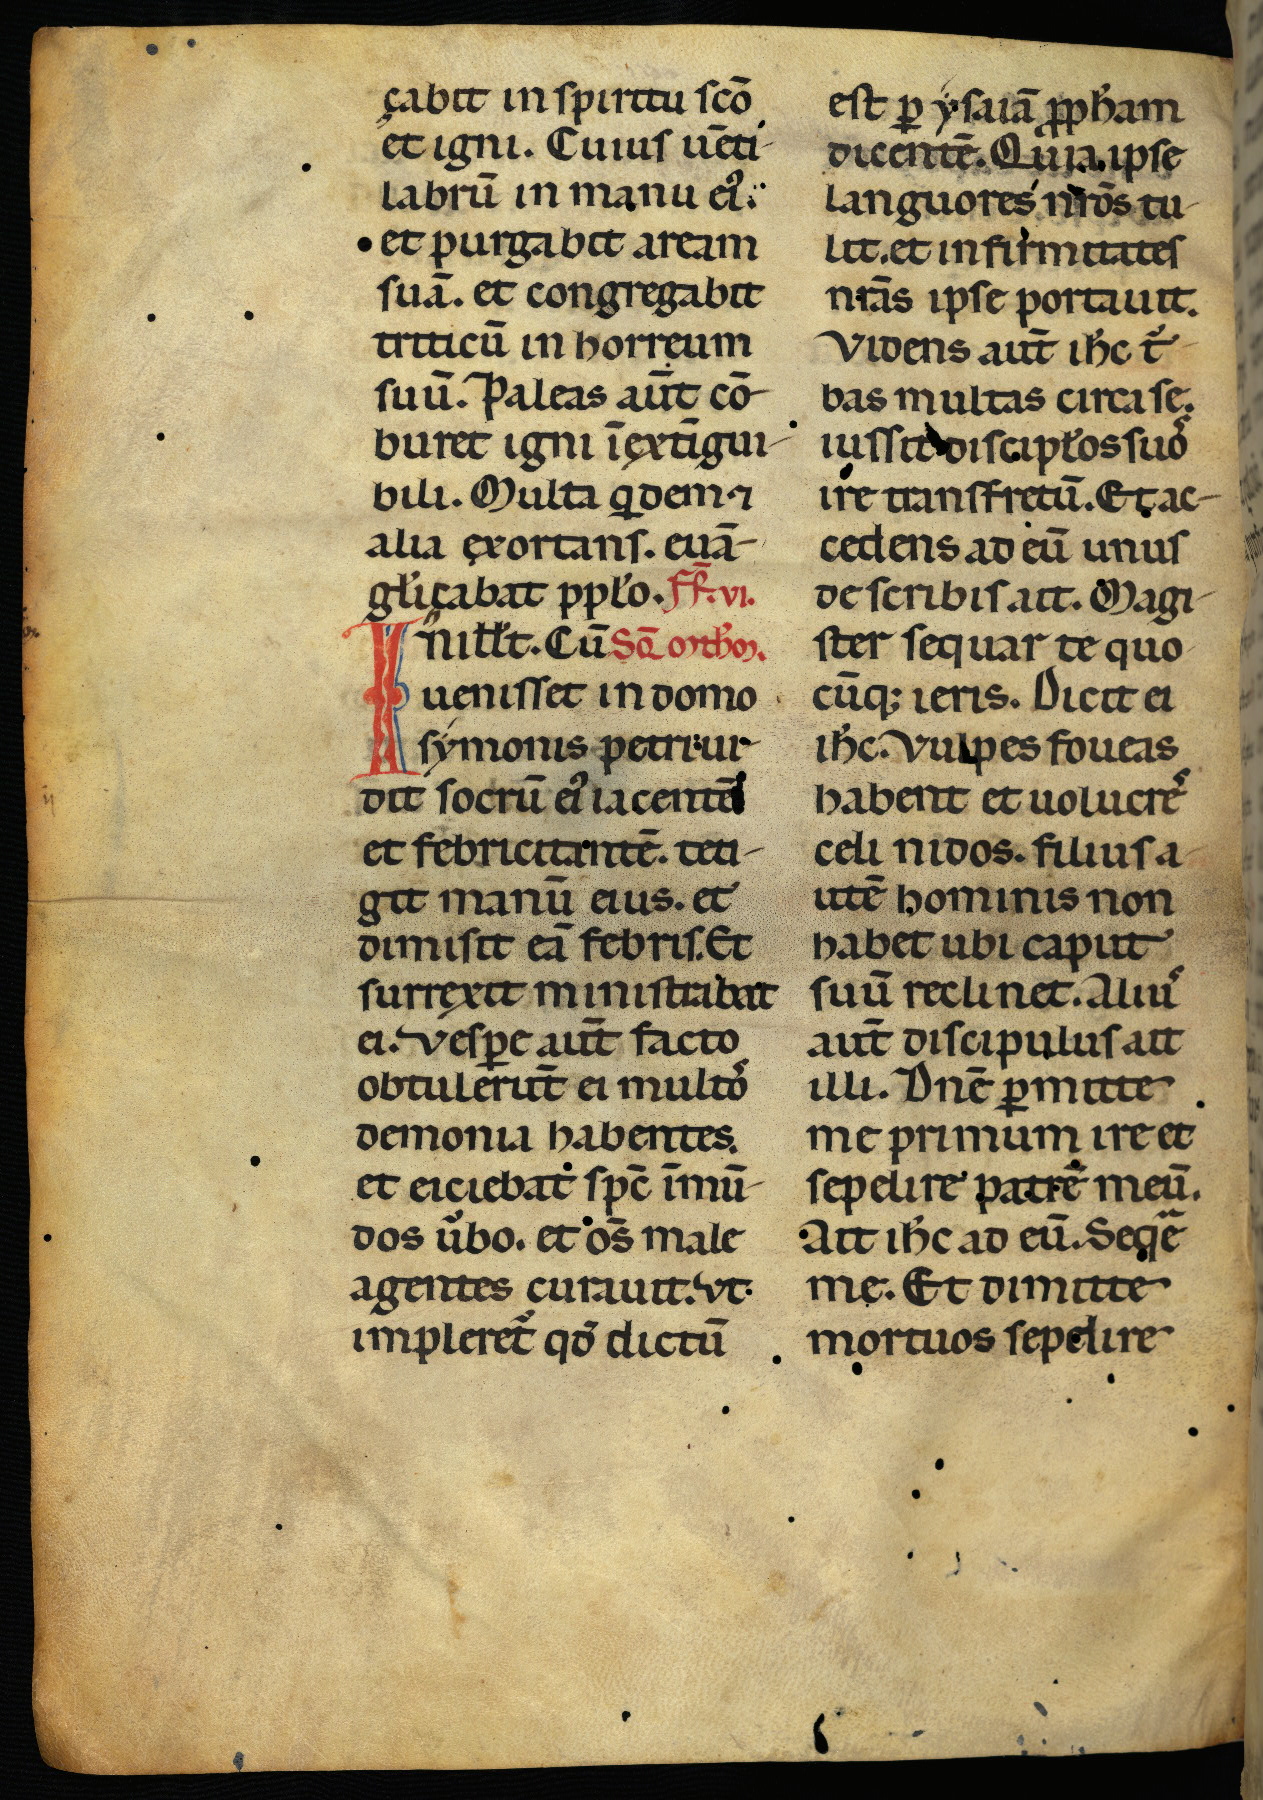 çabit in spiritu scō
et igni. Cuius uēti-
labrū in manu ei᾿.
et purgabit aream
suā. et congregabit
triticū in horreum
suū. Paleas aūt cō-
buret igni īextīgui-
bili. Multa qdem ⁊
alia exortans. euā-
gƚiçabat ppƚo. Fr̄. vi.
Inillƚt. Cū Sc̄d ᴍthm.
uenisset in domo
symonis petri ui-
dit socrū ei᾿ iacentē
et febricitantē. teti-
git manū eius. et
dimisit eā febris. Et
surrexit ministrabat
ei. Vesꝑe aūt facto
obtulerūt ei multoˢ
demonia habentes.
et eiciebat spc̄ īmū-
dos u̾bo. et oc̄s male
agentes curauit. vt
impleret̾ qđ dictū
est ꝑ ysaiā ꝓpħam
dicentē. Quia ipse
languores nr̄os tu-
lit. et infirmitates
nrās ipse portauit.
Videns aūt iħc t̾-
bas multas circa se.
iussit discipƚos suoˢ
ire transfretū. Et ac-
cedens ad eū unus
de scribis ait. Magi-
ster sequar te quo
cūqꝫ ieris. Dicit ei
iħc. Vulpes foueas
habent et uolucreˢ
celi nidos. filius a-
utē hominis non
habet ubi caput
suū reclinet. Aliuˢ
aūt discipulus ait
illi. Dnē ꝑmitte
me primum ire et
sepelire patrē meū.
Ait iħc ad eū. Seqͣrē
me. Et dimitte
mortuos sepelire